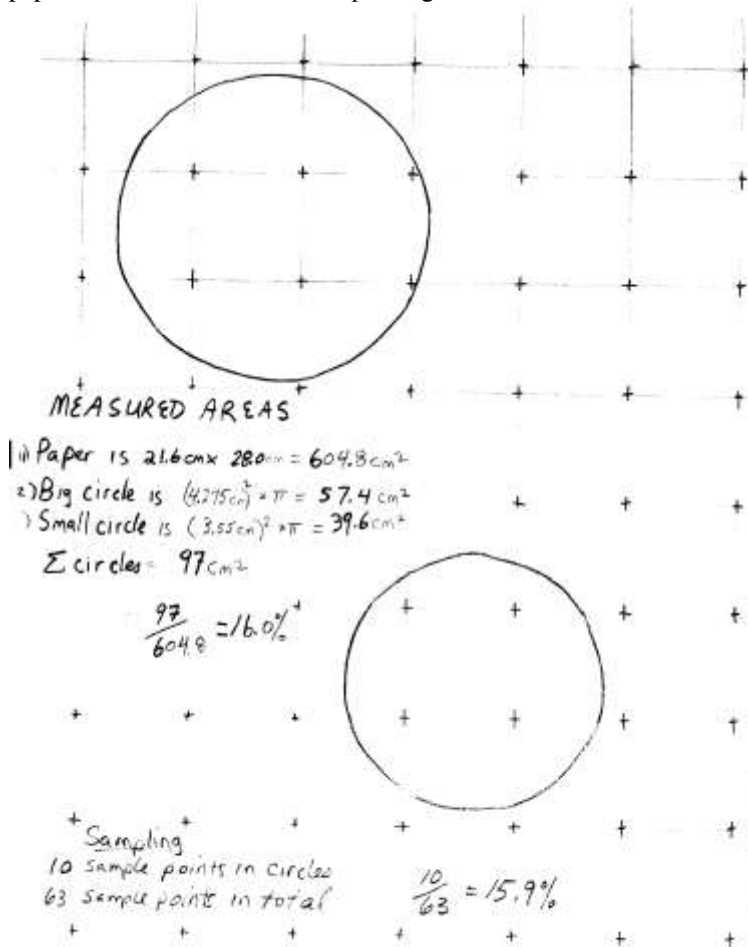 MEASURED AREAS
1) Paper is 21.6cm x 28.0cm = 604.8cm²
2) Big circle is (4.275cm)² * π = 57.4 cm²
) Small circle is (3.55cm)² * π = 39.6cm²
Σ circles = 97cm²
97/604.8 = 16.0%
Sampling
10 sample points in circles
63 sample points in total
10/63 = 15.9%